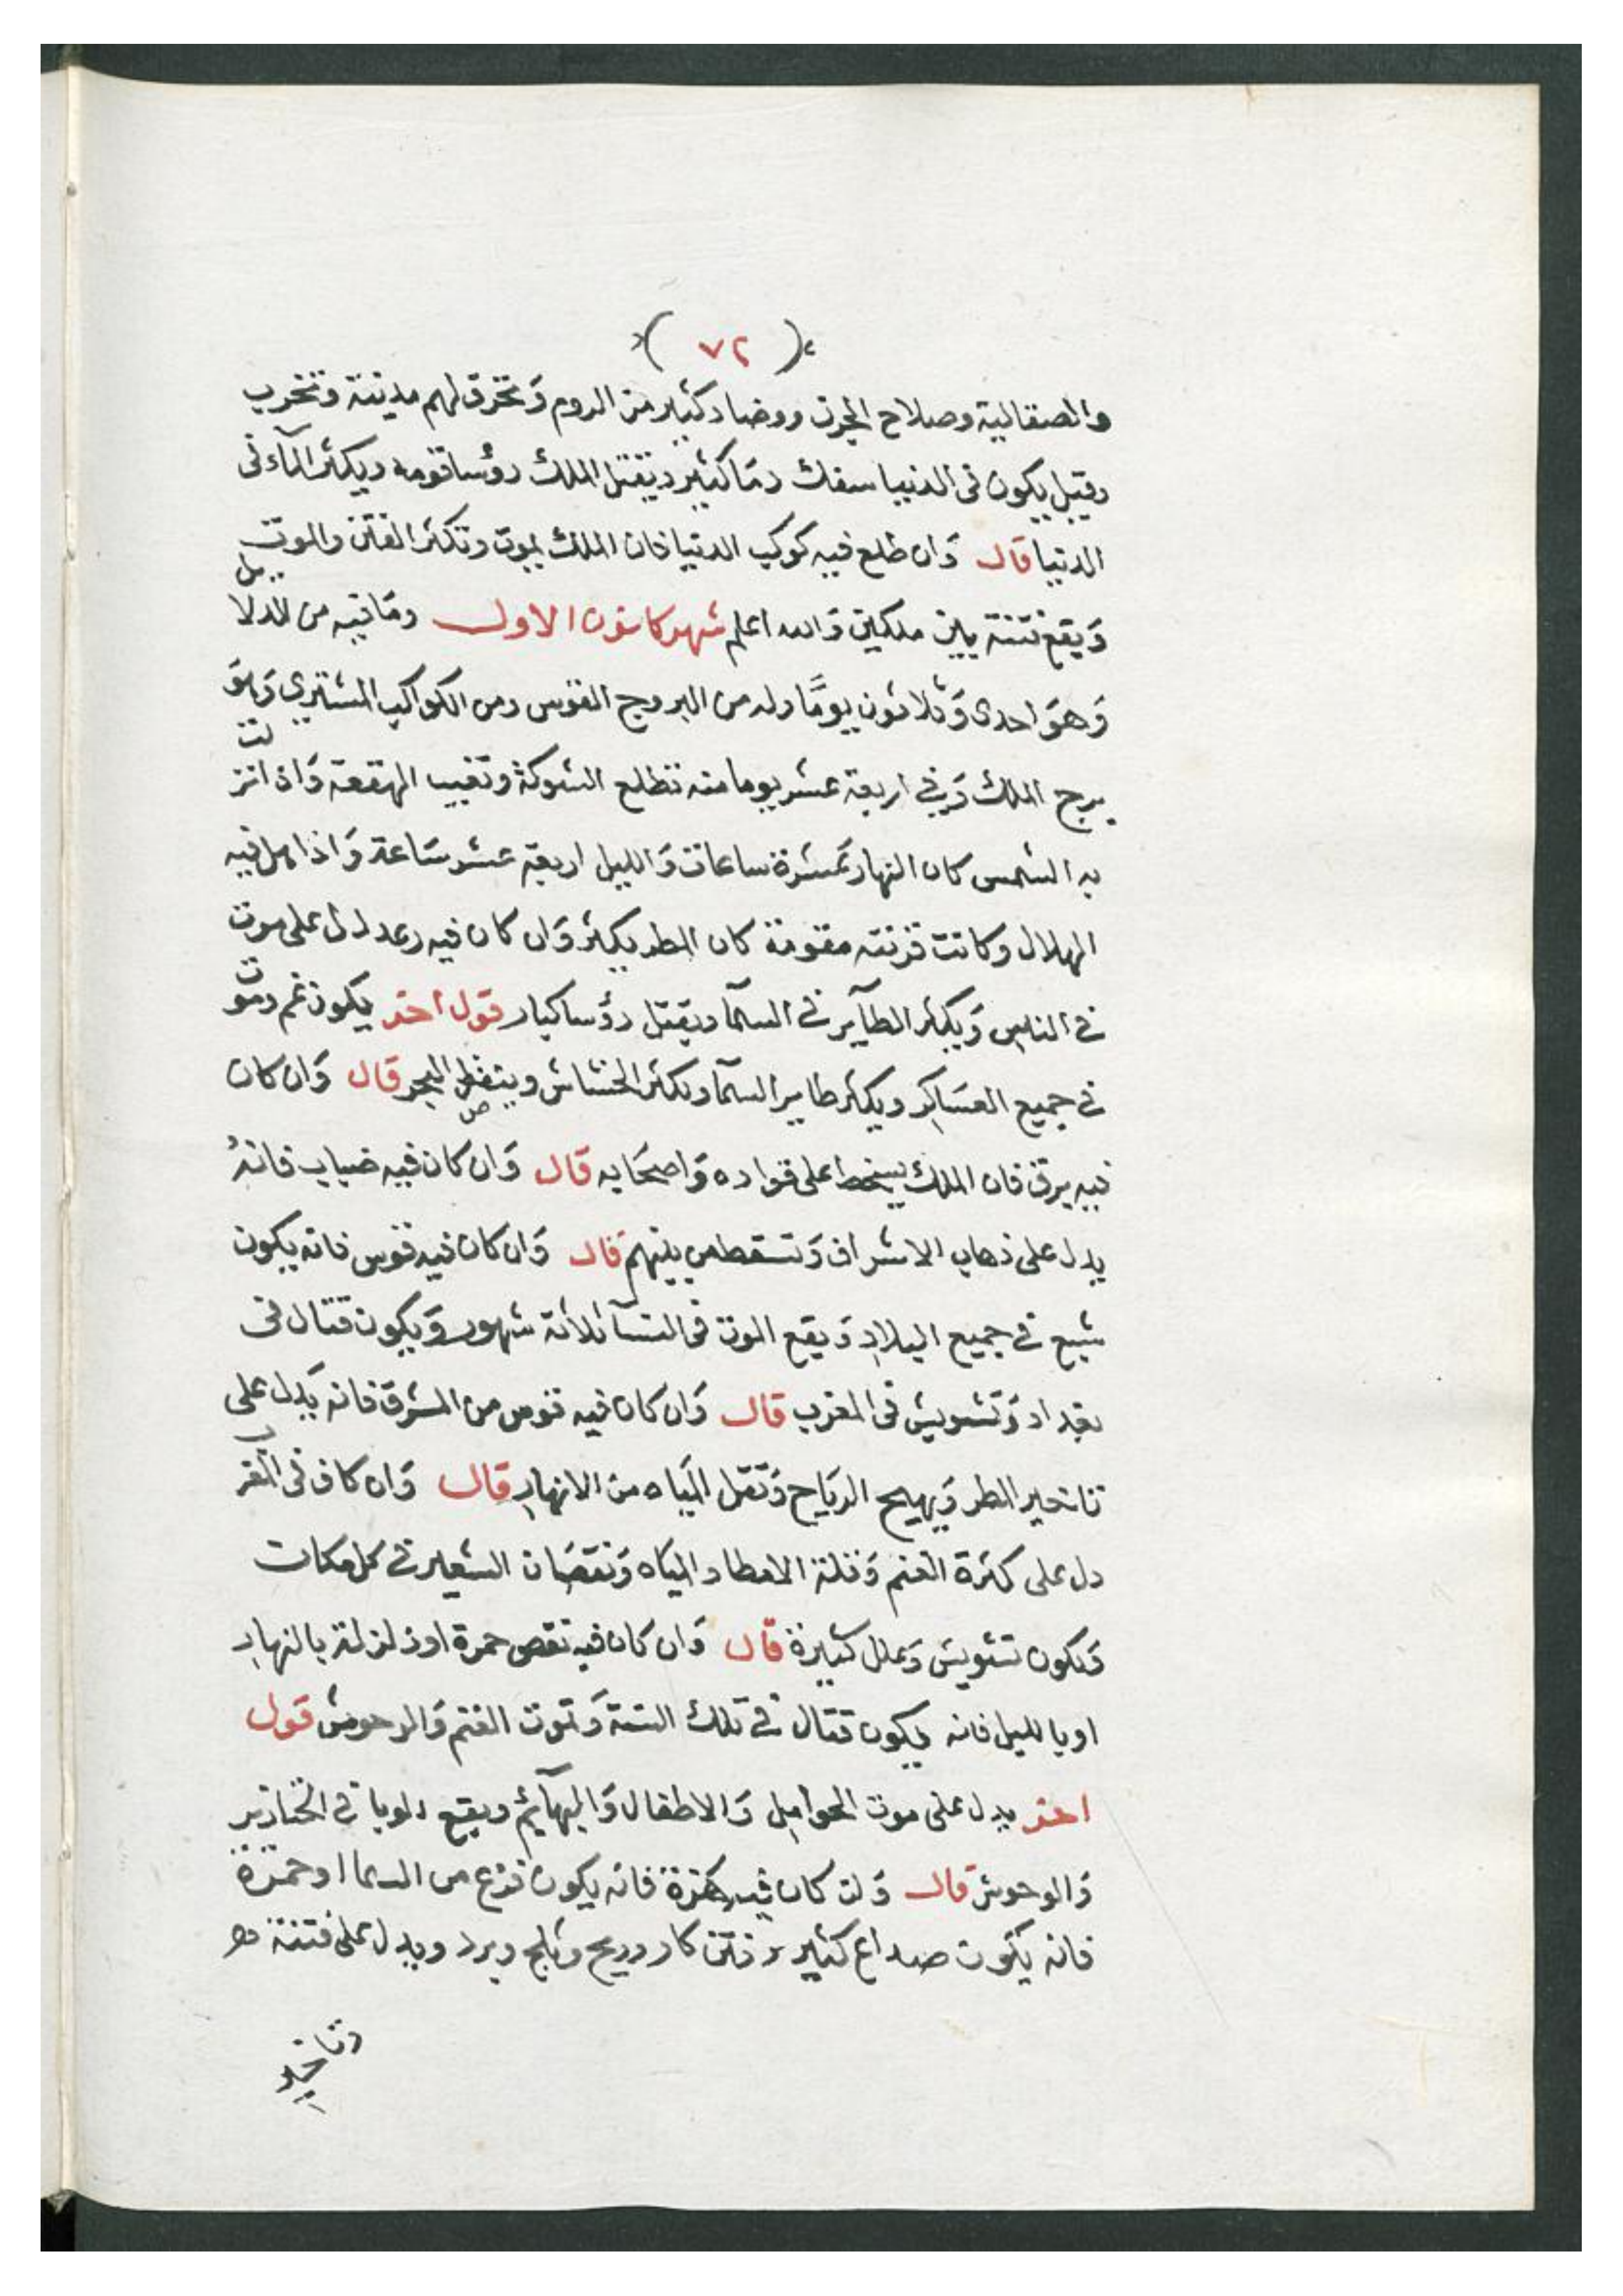 (٧٢)
والصقالية وصلاح الحرث وفساد كثير من الروم وَتحرق لهم مدينة وتخرب
وقيل يكون فى الدنيا سفك دمَا كثير ويقتل الملك رؤسا قومه ويكثر المآء فى
الدنيا قال وَان طلع فيه كوكب الدنيا فان الملك يموت وتكثر الفتن والموت
وَيقع فتنة بين ملكين وَالله اعلم شهر كانون الاول ومَا فيه من الدلايل
وَهوَ احدى وَثلاثون يومًا وله من البروج القوس ومن الكواكب المشترى وَهوَ
برج الملك وَفي اربعة عشر يوما منه تطلع الشوكة وتغيب الهقعة وَاذا نزلت
به الشمس كان النهار عَشرة ساعات وَالليل اربعة عشر سَاعة وَاذا هل فيه
الهلال وكانت قرنته مقومة كان المطر يكثر وَان كان فيه رعد دل على موت
في الناس وَيكثر الطآير في السمآ ويقتل رؤسا كبار قول اخر يكون غم وموت
في جميع العسَاكر ويكثر طاير السمآ ويكثر الخشاش وينقص البحر قال وَان كان
فيه برق فان الملك يسخط على قواده وَاصحَابه قال وَان كان فيه ضباب فانهُ
يدل على ذهاب الاشراف وَتسقط من بينهم قال وَان كان فيه قوس فانه يكون
شبع في جميع البلاد وَيقع الموت فى النسآ ثلاثة شهور وَيكون قتال فى
بغداد وَتشويش فى المغرب قال وَان كان فيه قوس من المشرق فانه يَدل على
تاخير المطر وَيهيج الريَاح وَتقل الميَاه من الانهار قال وَان كان فى المغرب
دل على كثرة الغنم وَقلة الامطار والميَاه وَنقصَان الشعير في كل مكان
وَيكون تشويش وَعلل كثيرة قال وَان كان فيه نقص حمرة او زلزلة بالنهار
او بالليل فانه يكون قتال في تلك السنة وَتموت الغنم وَالوحوش قول
اخر يدل على موت الحوامل وَالاطفال وَالبهآيم ويقع الوبا في الخنازير
وَالوحوش قال وَان كان فيه هزة فانه يكون فزع من السما او حمرة
فانه يكون صداع كثير وفتن كار وريح وثلج وبرد ويدل على فتنة
وتاخير